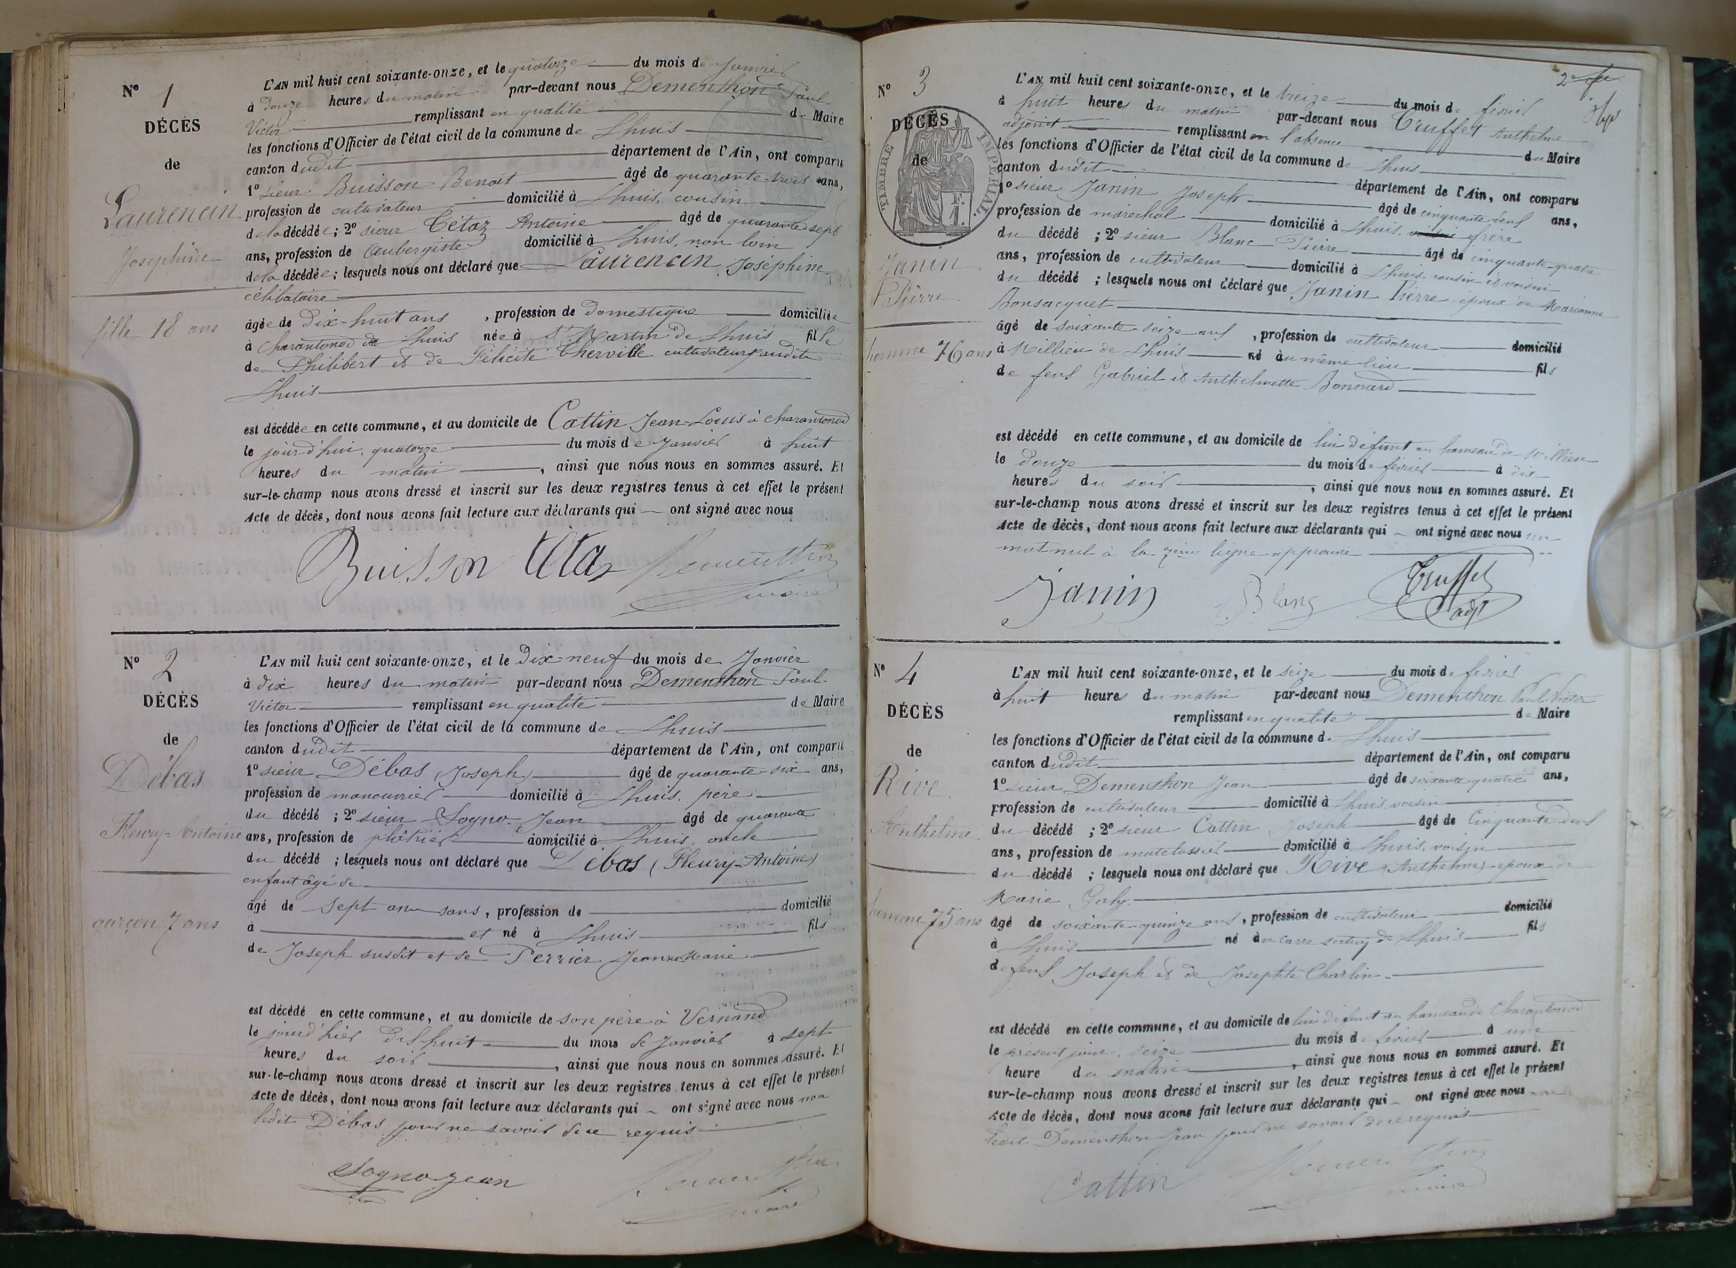 N° 1
DÉCÈS
de
Laurencin
Joséphine
fille 18 ans
L'AN mil huit cent soixante-onze, et le quatorze du mois de Janvier
à douze heures du matin par-devant nous Dementhon Paul
Victor remplissant en qualité de Maire
les fonctions d'Officier de l'état civil de la commune de Lhuis
canton dudit département de l'Ain, ont comparu
1° sieur Buisson Benoit âgé de quarante-trois ans,
profession de cultivateur domicilié à Lhuis, cousin
de la décédée; 2° sieur Tétaz Antoine âgé de quarante sept
ans, profession de aubergiste domicilié à Lhuis, non loin
de la décédée; lesquels nous ont déclaré que Laurencin Joséphine
célibataire
âgée de dix-huit ans, profession de domestique domiciliée
à Charantonod de Lhuis née à St Martin de Lhuis fille
de Philibert et de Félicité Cherville cultivateurs audit
Lhuis
est décédée en cette commune, et au domicile de Cattin Jean Louis à Charantonod
le jourd'hui quatorze du mois de Janvier à huit
heures du matin, ainsi que nous nous en sommes assuré. Et
sur-le-champ nous avons dressé et inscrit sur les deux registres tenus à cet effet le présent
Acte de décès, dont nous avons fait lecture aux déclarants qui ont signé avec nous
Buisson Tétaz Dementhon
maire
N° 2
DÉCÈS
de
Débas
Fleury-Antoine
garçon 7 ans
L'AN mil huit cent soixante-onze, et le dix neuf du mois de Janvier
à dix heures du matin par-devant nous Dementhon Paul
Victor remplissant en qualité de Maire
les fonctions d'Officier de l'état civil de la commune de Lhuis
canton dudit département de l'Ain, ont comparu
1° sieur Débas (Joseph) âgé de quarante six ans,
profession de manouvrier domicilié à Lhuis, père
du décédé; 2° sieur Sogno Jean âgé de quarante
ans, profession de plâtrier domicilié à Lhuis, oncle
du décédé; lesquels nous ont déclaré que Débas (Fleury-Antoine)
enfant âgé de
âgé de sept ans, profession de domicilié
à et né à Lhuis fils
de Joseph susdit et de Perrier Jeanne Marie
est décédé en cette commune, et au domicile de son père à Vernand
le jourd'hier dix huit du mois de Janvier à sept
heures du soir, ainsi que nous nous en sommes assuré. Et
sur-le-champ nous avons dressé et inscrit sur les deux registres tenus à cet effet le présent
Acte de décès, dont nous avons fait lecture aux déclarants qui ont signé avec nous non
ledit Débas pour ne savoir de ce requis
Sogno jean Dementhon
maire
2e
N° 3
DÉCÈS
de
TIMBRE IMPÉRIAL
Janin
Pierre
homme 76 ans
L'AN mil huit cent soixante-onze, et le treize du mois de février
à huit heures du matin par-devant nous Truffet Anthelme
adjoint remplissant en l'absence du Maire
les fonctions d'Officier de l'état civil de la commune de Lhuis
canton dudit département de l'Ain, ont comparu
1° sieur Janin Joseph âgé de cinquante neuf ans,
profession de maréchal domicilié à Lhuis frère
du décédé; 2° sieur Blanc Pierre âgé de cinquante-quatre
ans, profession de cultivateur domicilié à Lhuis cousin et voisin
du décédé; lesquels nous ont déclaré que Janin Pierre époux de Marianne
Bonsacquet
âgé de soixante seize ans, profession de cultivateur domicilié
à Millieu de Lhuis né au même lieu fils
de feus Gabriel et Anthelmette Bonnard
est décédé en cette commune, et au domicile de lui défunt au hameau de Millieu
le douze du mois de février à dix
heures du soir, ainsi que nous nous en sommes assuré. Et
sur-le-champ nous avons dressé et inscrit sur les deux registres tenus à cet effet le présent
Acte de décès, dont nous avons fait lecture aux déclarants qui ont signé avec nous un
mot nul à la 7ème ligne approuvé
Janin Blanc Truffet
adjt
N° 4
DÉCÈS
de
Rive
Anthelme
homme 75 ans
L'AN mil huit cent soixante-onze, et le seize du mois de février
à huit heures du matin par-devant nous Dementhon Paul Victor
remplissant en qualité de Maire
les fonctions d'Officier de l'état civil de la commune de Lhuis
canton dudit département de l'Ain, ont comparu
1° sieur Dementhon Jean âgé de soixante quatre ans,
profession de cultivateur domicilié à Lhuis voisin
du décédé; 2° sieur Cattin Joseph âgé de Cinquante deux
ans, profession de matelassier domicilié à Lhuis, voisin
du décédé; lesquels nous ont déclaré que Rive Anthelme époux de
Marie Goly
âgé de soixante-quinze ans, profession de cultivateur domicilié
à Lhuis né de Lhuis fils
de feus Joseph et de Josephte Charlin
est décédé en cette commune, et au domicile de lui défunt au hameau de Charantonod
le present jour, seize du mois de février à une
heure du matin, ainsi que nous nous en sommes assuré. Et
sur-le-champ nous avons dressé et inscrit sur les deux registres tenus à cet effet le présent
Acte de décès, dont nous avons fait lecture aux déclarants qui ont signé avec nous non
ledit Dementhon Jean pour ne savoir de ce requis
Cattin Dementhon
maire